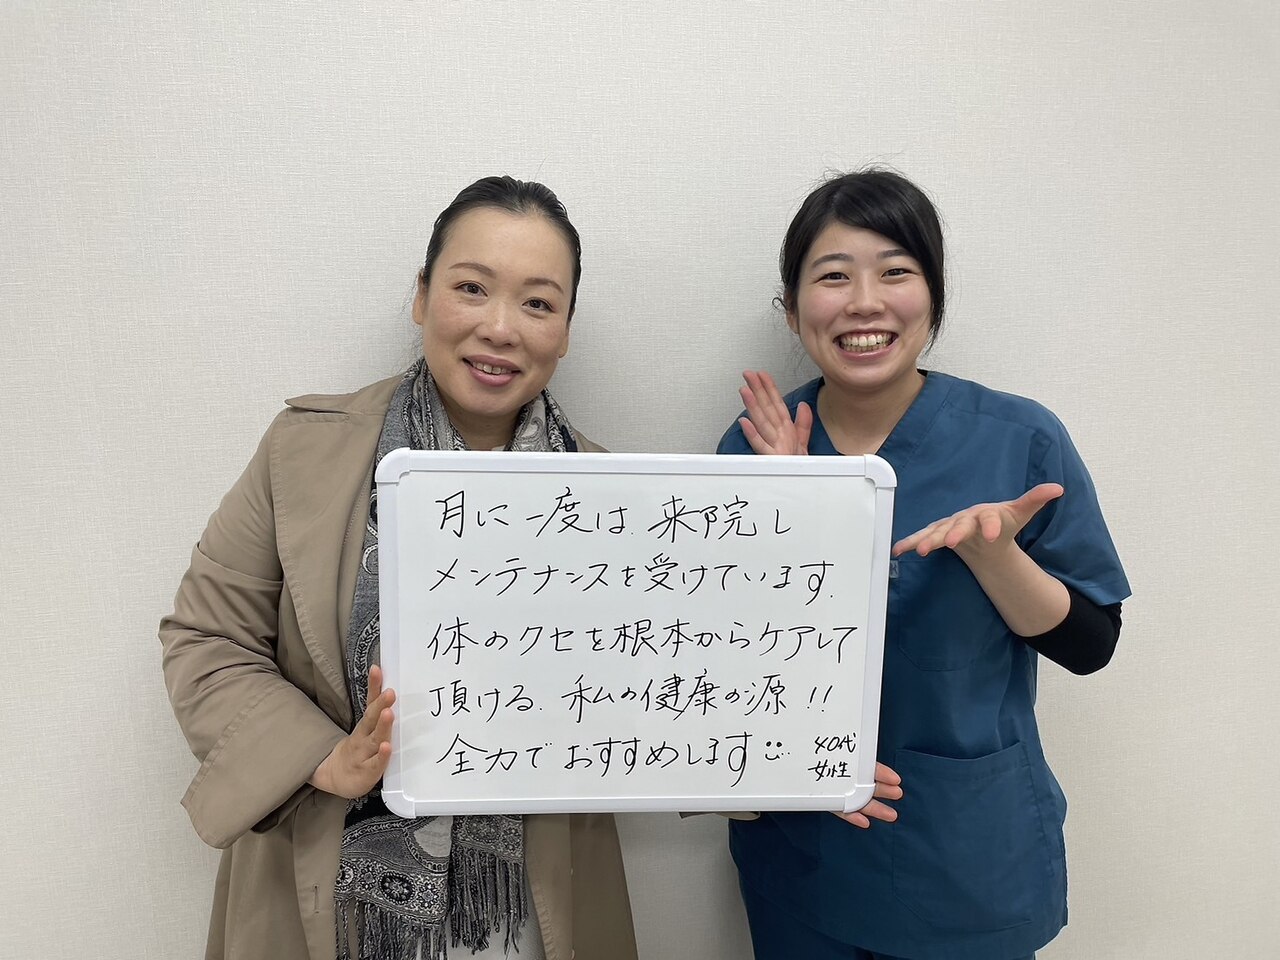 月に一度は、来院し
メンテナンスを受けています。
体のクセを根本からケアして
頂ける、私の健康の源!!
全力でおすすめします
40代
女性